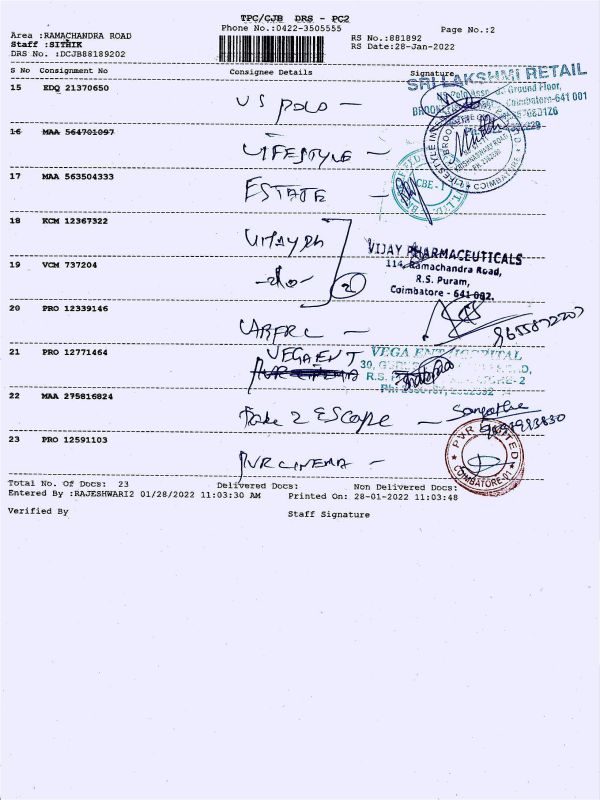 TPC/CJB DRS - PC2
Area :RAMACHANDRA ROAD
Phone No.:0422-3505555
Page No.:2
Staff :SITHIK
RS No.:881892
DRS No. :DCJB88189202
RS Date:28-Jan-2022
S No Consignment No Consignee Details Signature
SRI LAKSHMI RETAIL
15 EDQ 21370650
US POLO -
Ground Floor,
Coimbatore-641 001
16 MAA 564701097
LIFESTYLE -
17 MAA 563504333
ESTATE -
CBE - 1
COIMBATORE
18 KCM 12367322
VIJAY Ph
VIJAY PHARMACEUTICALS
114, Ramachandra Road,
R.S. Puram,
Coimbatore - 641 002.
19 VCM 737204
-do-
2
20 PRO 12339146
21 PRO 12771464
VEGA ENT
PVR CINEMA
VEGA ENT HOSPITAL
22 MAA 275816824
Take 2 Escape -
23 PRO 12591103
PVR CINEMA -
PVR LIMITED
COIMBATORE-01
Total No. Of Docs: 23 Delivered Docs: Non Delivered Docs:
Entered By :RAJESHWARI2 01/28/2022 11:03:30 AM Printed On: 28-01-2022 11:03:48
Verified By Staff Signature